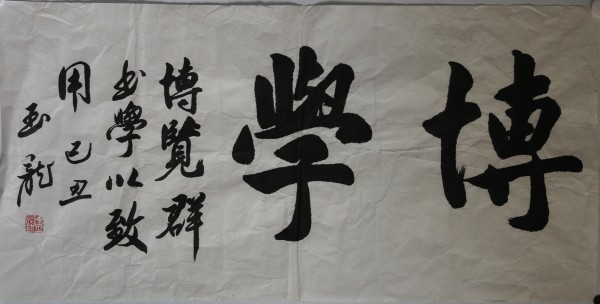 博學
博覽群
书學以致
用己丑
玉龍